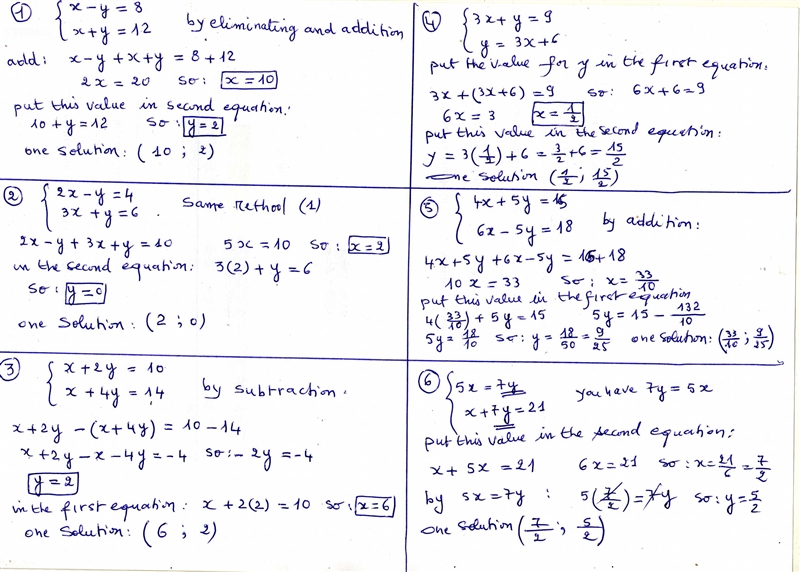 ① { x - y = 8
x + y = 12 by eliminating and addition
add: x - y + x + y = 8 + 12
2x = 20 so: x = 10
put this value in second equation:
10 + y = 12 so: y = 2
one solution: (10 ; 2)
② { 2x - y = 4
3x + y = 6 . Same method (1)
2x - y + 3x + y = 10 5x = 10 so: x = 2
in the second equation: 3(2) + y = 6
so: y = 0
one solution: (2 ; 0)
③ { x + 2y = 10
x + 4y = 14 by subtraction.
x + 2y - (x + 4y) = 10 - 14
x + 2y - x - 4y = -4 so: - 2y = -4
y = 2
in the first equation: x + 2(2) = 10 so: x = 6
one solution: (6 ; 2)
④ { 3x + y = 9
y = 3x + 6
put the value for y in the first equation:
3x + (3x + 6) = 9 so: 6x + 6 = 9
6x = 3 x = 1/2
put this value in the second equation:
y = 3(1/2) + 6 = 3/2 + 6 = 15/2
one solution (1/2 ; 15/2)
⑤ { 4x + 5y = 15
6x - 5y = 18 by addition:
4x + 5y + 6x - 5y = 15 + 18
10x = 33 so: x = 33/10
put this value in the first equation
4(33/10) + 5y = 15 5y = 15 - 132/10
5y = 18/10 so: y = 18/50 = 9/25 one solution: (33/10 ; 9/25)
⑥ { 5x = 7y you have 7y = 5x
x + 7y = 21
put this value in the second equation:
x + 5x = 21 6x = 21 so: x = 21/6 = 7/2
by 5x = 7y : 5(7/2) = 7y so: y = 5/2
one solution (7/2 ; 5/2)